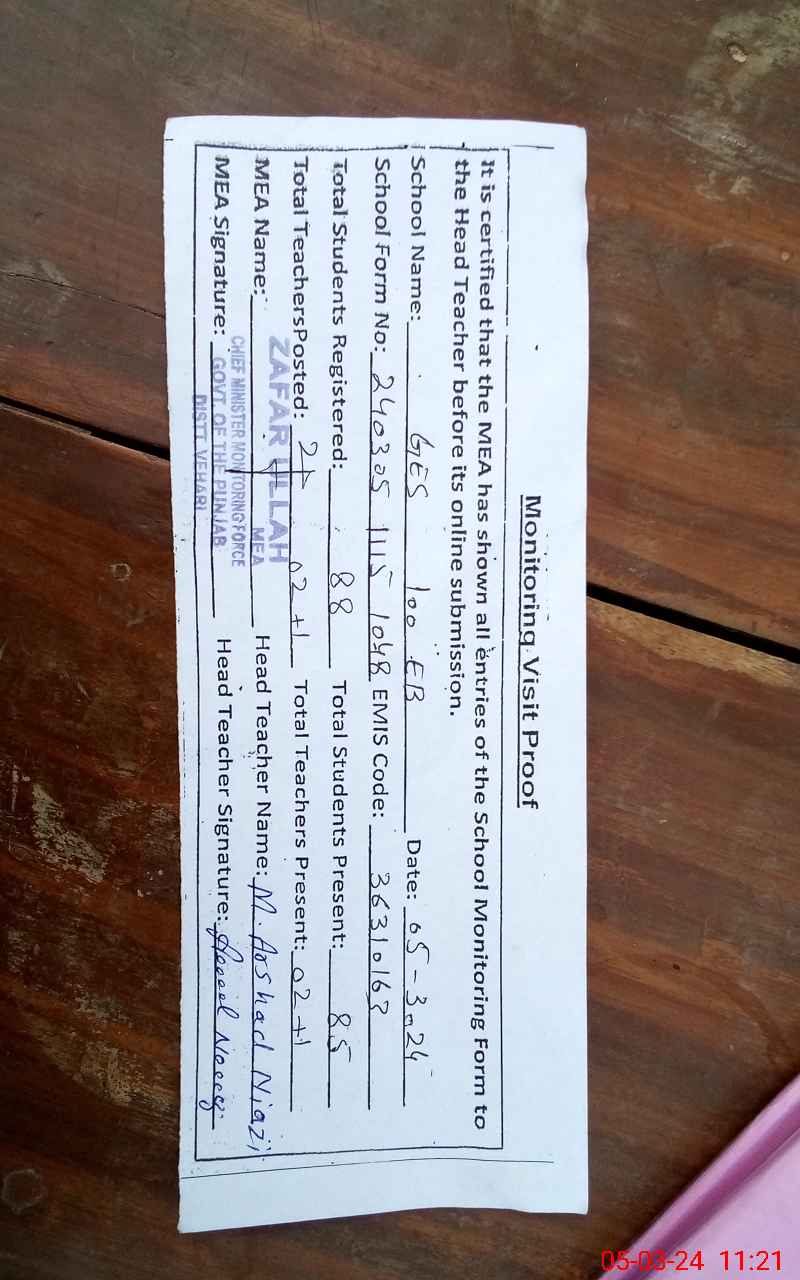 Monitoring Visit Proof
It is certified that the MEA has shown all entries of the School Monitoring Form to
the Head Teacher before its online submission.
School Name: GES 100 EB Date: 05-3-24
School Form No: 240305 1115 1048 EMIS Code: 36310163
Total Students Registered: 88 Total Students Present: 85
Total TeachersPosted: 02 +1 Total Teachers Present: 02 +1
MEA Name: ZAFAR ULLAH Head Teacher Name: M. Arshad Niazi
MEA
CHIEF MINISTER MONITORING FORCE
MEA Signature: GOVT. OF THE PUNJAB Head Teacher Signature:
DISTT. VEHARI
05-03-24 11:21